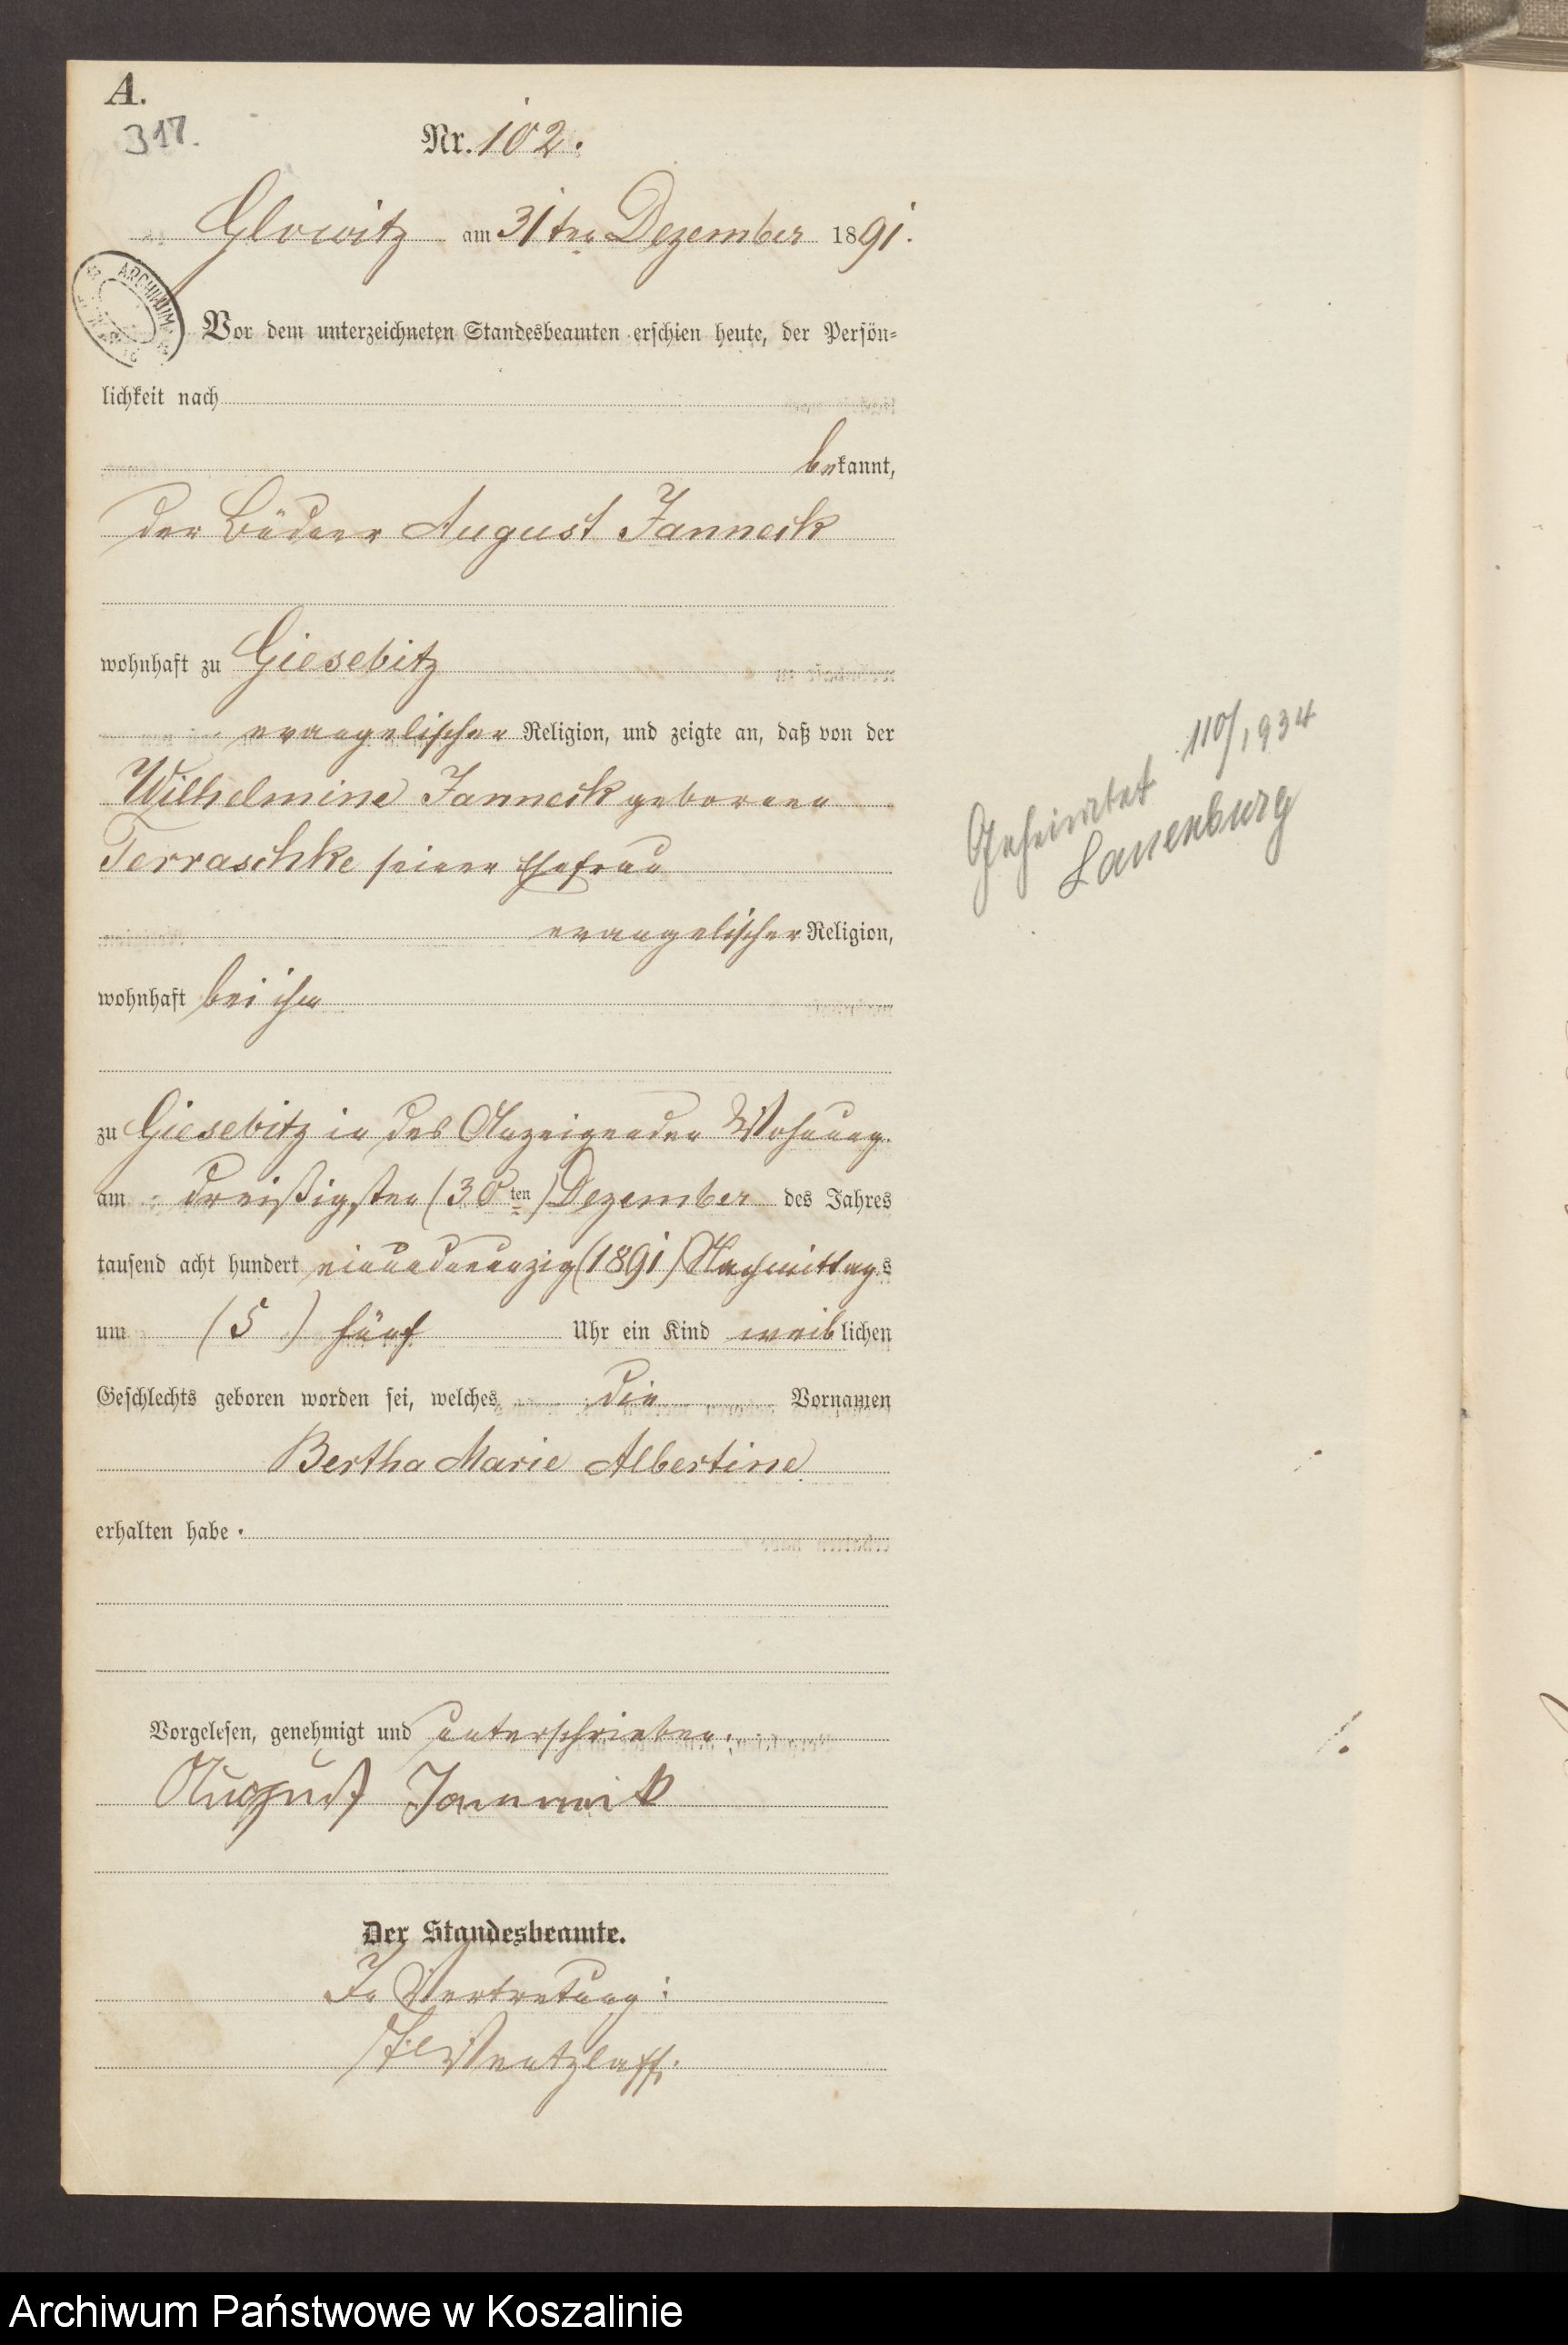 A.
317.
Nr. 102.
Glowitz am 31ten Dezember 1891.
ARCHIWUM
Vor dem unterzeichneten Standesbeamten erschien heute, der Persön-
lichkeit nach
bekannt,
der Büdner August Janneck
wohnhaft zu Giesebitz
evangelischer Religion, und zeigte an, daß von der
Wilhelmine Janneck geborenen
Terraschke seiner Ehefrau
evangelischer Religion,
wohnhaft bei ihm
zu Giesebitz in des Anzeigenden Wohnung
am dreißigsten (30ten) Dezember des Jahres
tausend acht hundert einundneunzig (1891) Nachmittags
um (5) fünf Uhr ein Kind weiblichen
Geschlechts geboren worden sei, welches die Vornamen
Bertha Marie Albertine
erhalten habe.
Vorgelesen, genehmigt und unterschrieben.
August Jannick
Der Standesbeamte.
In Vertretung:
Wentzlaff.
Geheiratet 110/1934
Lauenburg
Archiwum Państwowe w Koszalinie